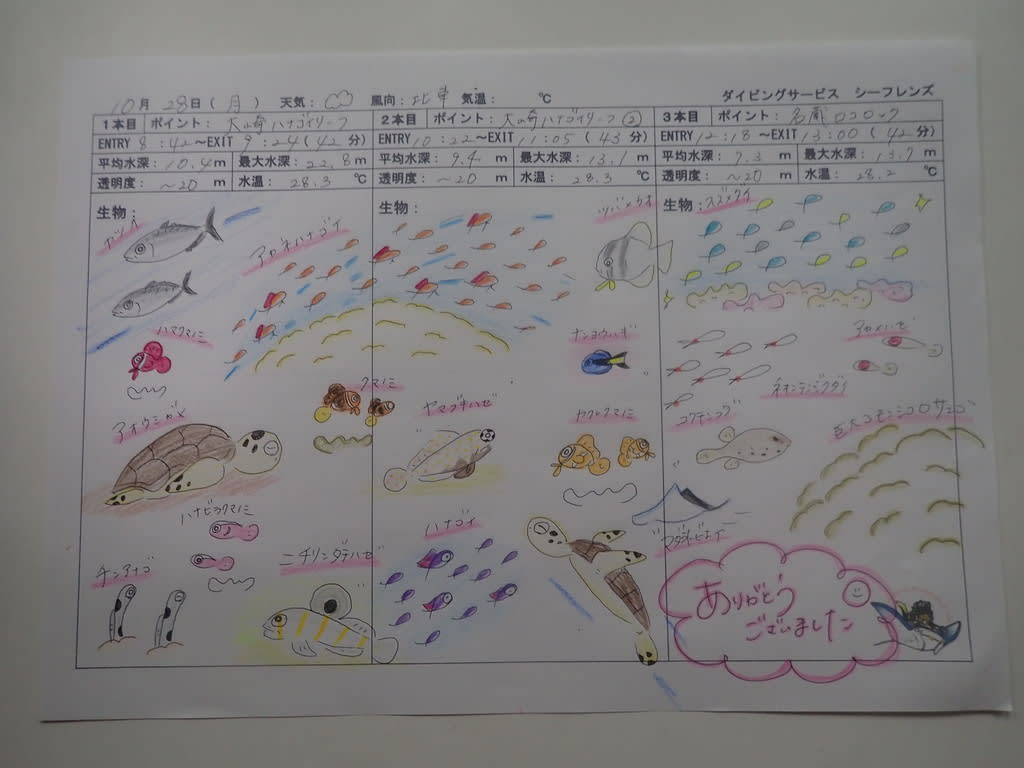 10月 28日(月) 天気: 風向:北東 気温: ℃ ダイビングサービス シーフレンズ
1本目 ポイント: 大崎ハナゴイリーフ
ENTRY 8:42～EXIT 9:24(42分)
平均水深: 10.4m 最大水深: 22.8m
透明度: ～20 m 水温: 28.3 ℃
生物:
カツオ
アカネハナゴイ
ハマクマノミ
クマノミ
アオウミガメ
ハナビラクマノミ
チンアナゴ
ニチリンダテハゼ
2本目 ポイント: 大崎ハナゴイリーフ②
ENTRY 10:22～EXIT 11:05(43分)
平均水深: 9.4m 最大水深: 13.1m
透明度: ～20 m 水温: 28.3 ℃
生物:
ツバメウオ
ナンヨウハギ
ヤマブキハゼ
ヤクシマクマノミ
ハナゴイ
3本目 ポイント: 名蔵ロコロック
ENTRY 12:18～EXIT 13:00(42分)
平均水深: 7.3 m 最大水深: 13.7m
透明度: ～20 m 水温: 28.2 ℃
生物: スズメダイ
アカメハゼ
ネオンテンジクダイ
コクテンフグ
巨大コモンシコロサンゴ
マダラトビエイ
ありがとう
ございました